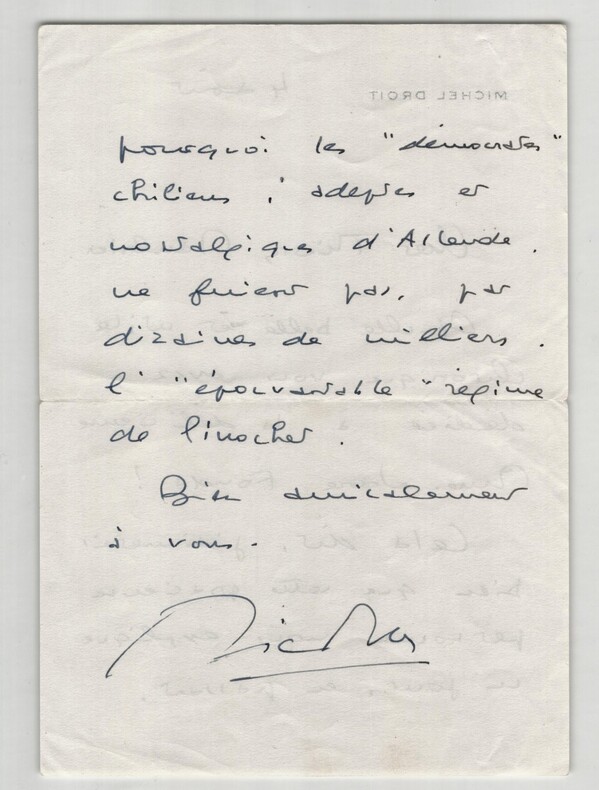 MICHEL DROIT
pourquoi les "démocrates"
chiliens, adeptes et
nostalgiques d'Allende,
ne fuient pas, par
dizaines de milliers,
l' "épouvantable" régime
de Pinochet.
Bien amicalement
à vous.